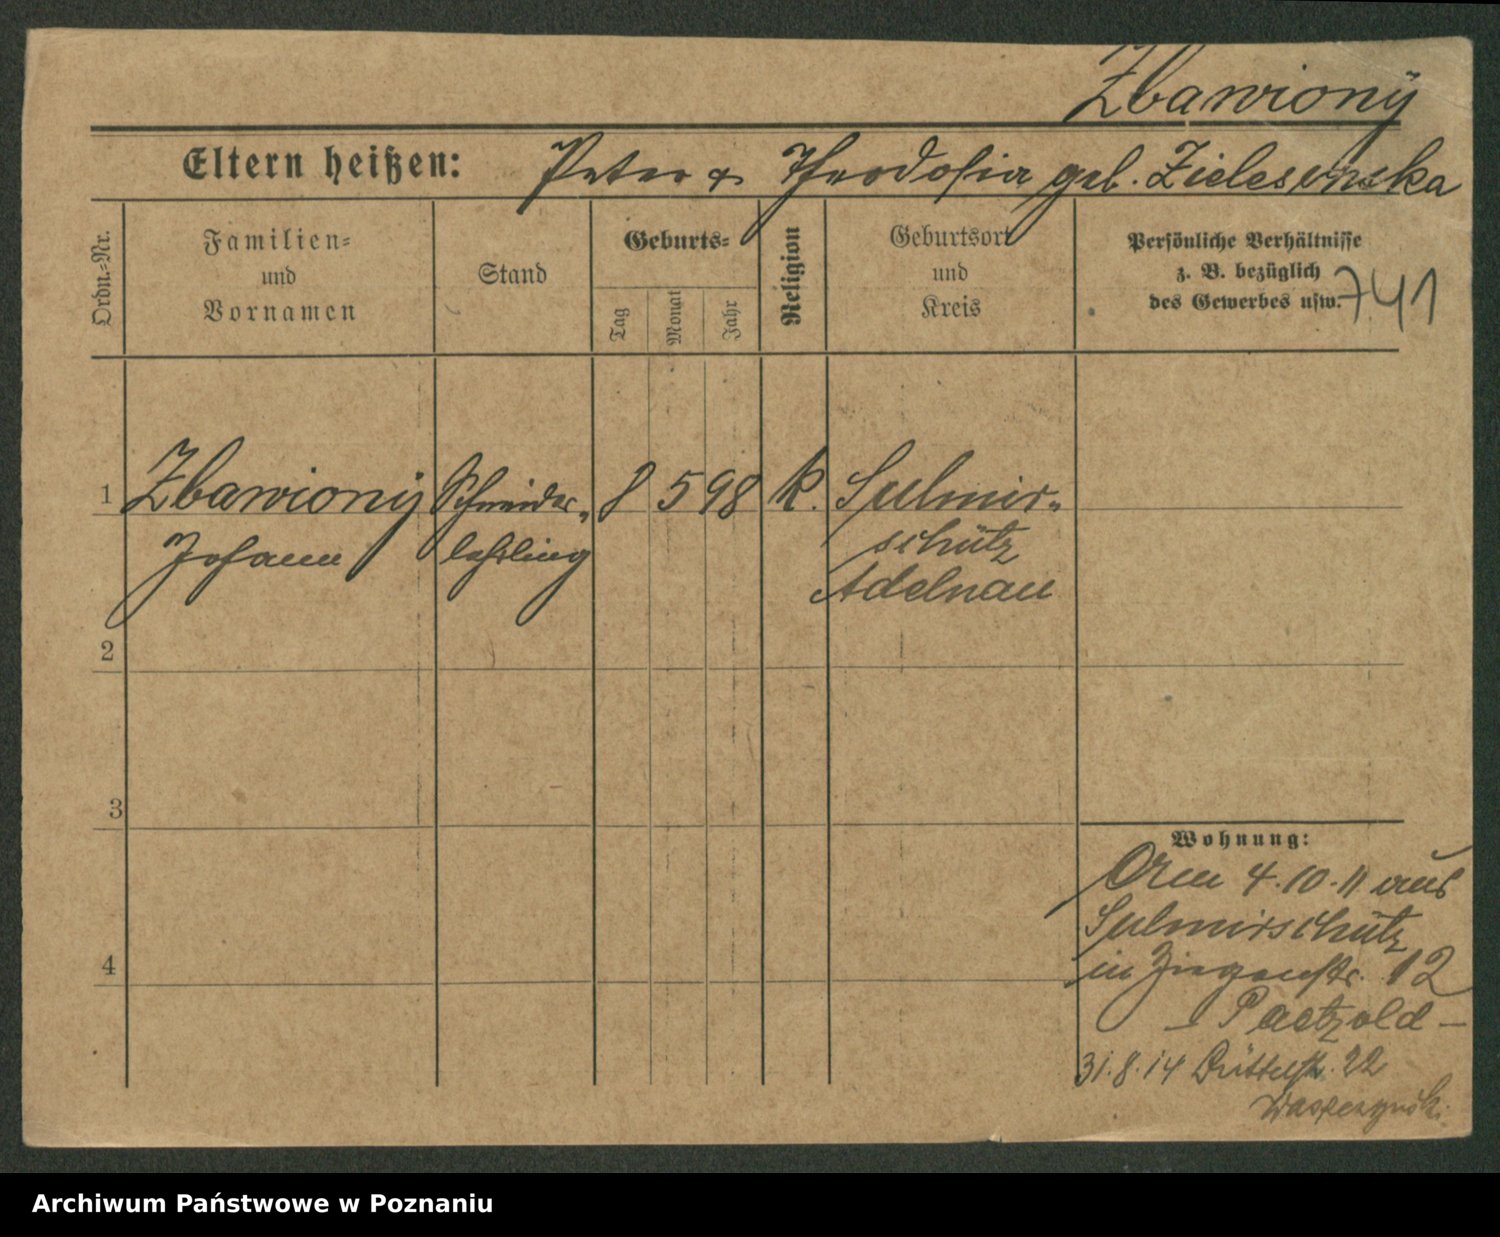 Zbawionÿ
Eltern heißen: Peter & Theodosia geb. Zielesinska
Ordn.-Nr.
Familien-
und
Vornamen
Stand
Geburts-
Tag
Monat
Jahr
Religion
Geburtsort
und
Kreis
Persönliche Verhältnisse
z. B. bezüglich
des Gewerbes usw.
741
1 Zbawionÿ Schneider- 8 5 98 k. Sulmir-
Johann lehrling schütz
Adelnau
2
3
4
Wohnung:
4.10.11 aus
Sulmirschütz
in Ziegenstr. 12
– Paetzold –
31.8.14 22
Archiwum Państwowe w Poznaniu